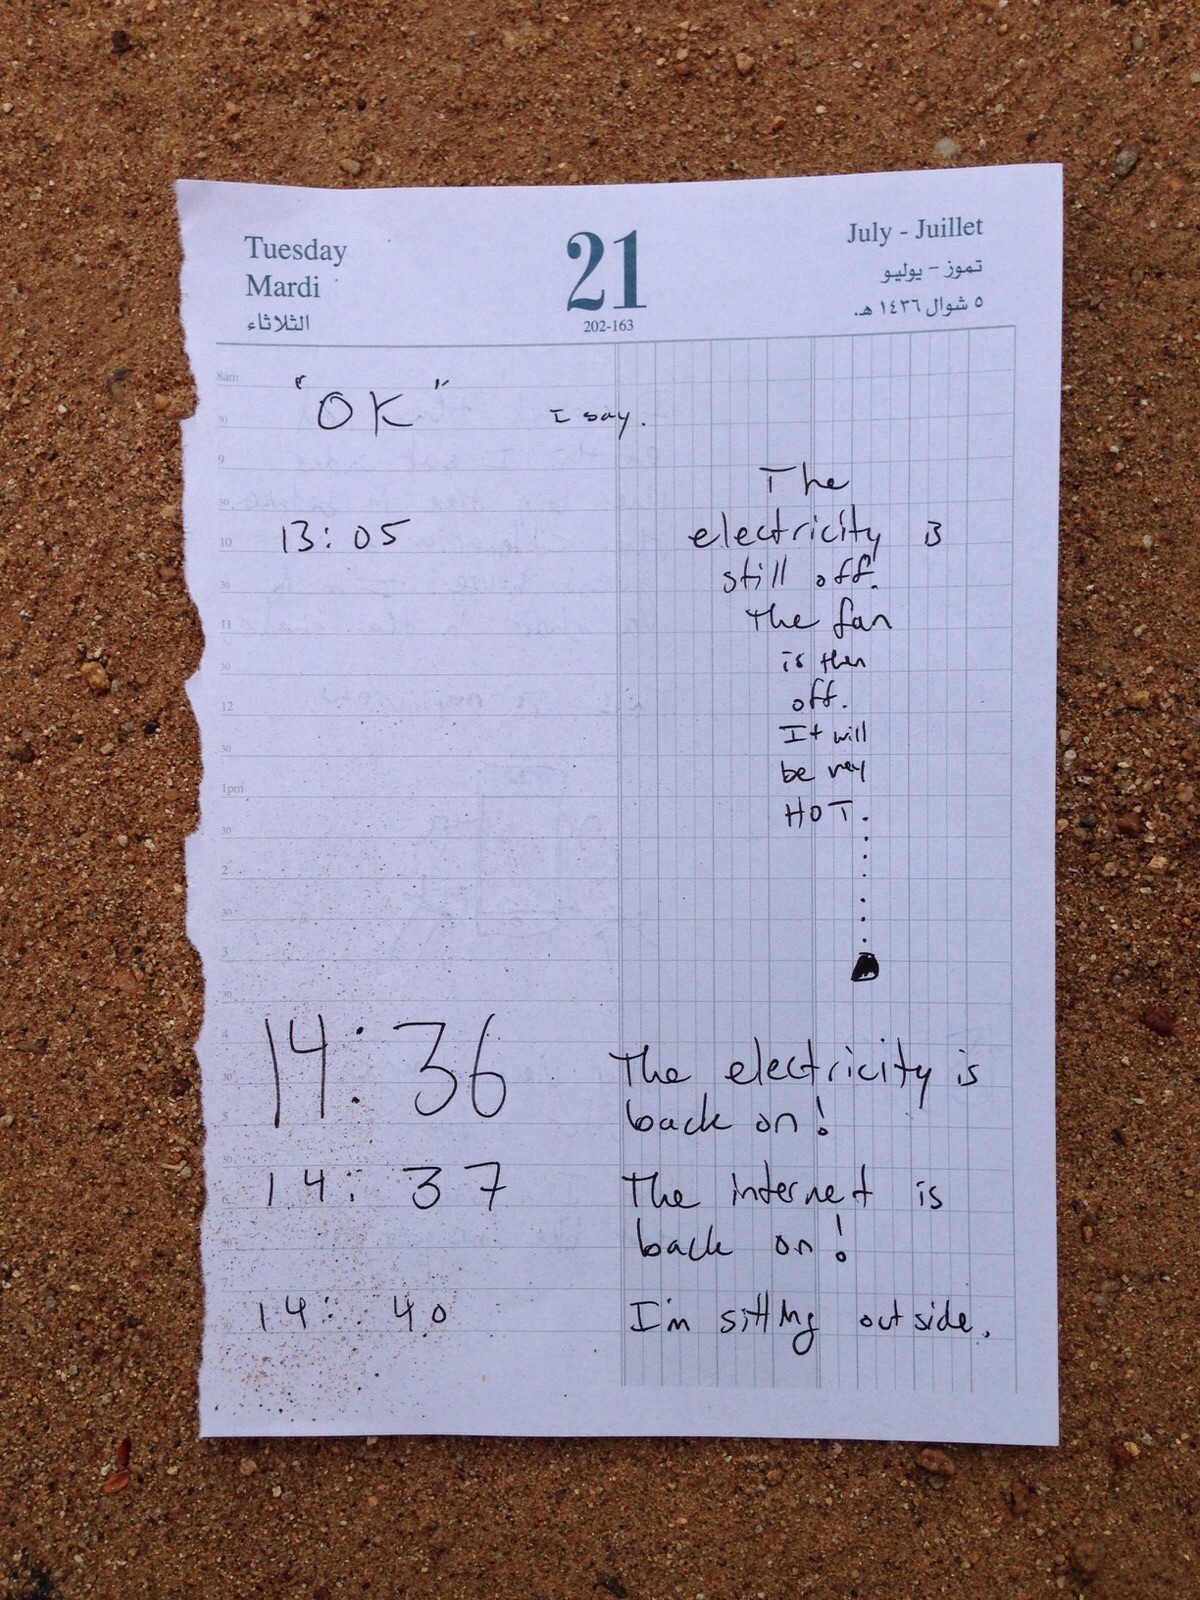 Tuesday
Mardi
الثلاثاء
21
202-163
July - Juillet
تموز - يوليو
٥ شوال ١٤٣٦ هـ.
8am
30
9
30
10
30
11
30
12
30
1pm
30
2
30
3
30
4
30
5
30
6
7
"OK" I say.
13:05
The
electricity is
still off.
The fan
is then
off.
It will
be very
HOT.
14:36 The electricity is
back on!
14:37 The internet is
back on!
14:40 I'm sitting outside.